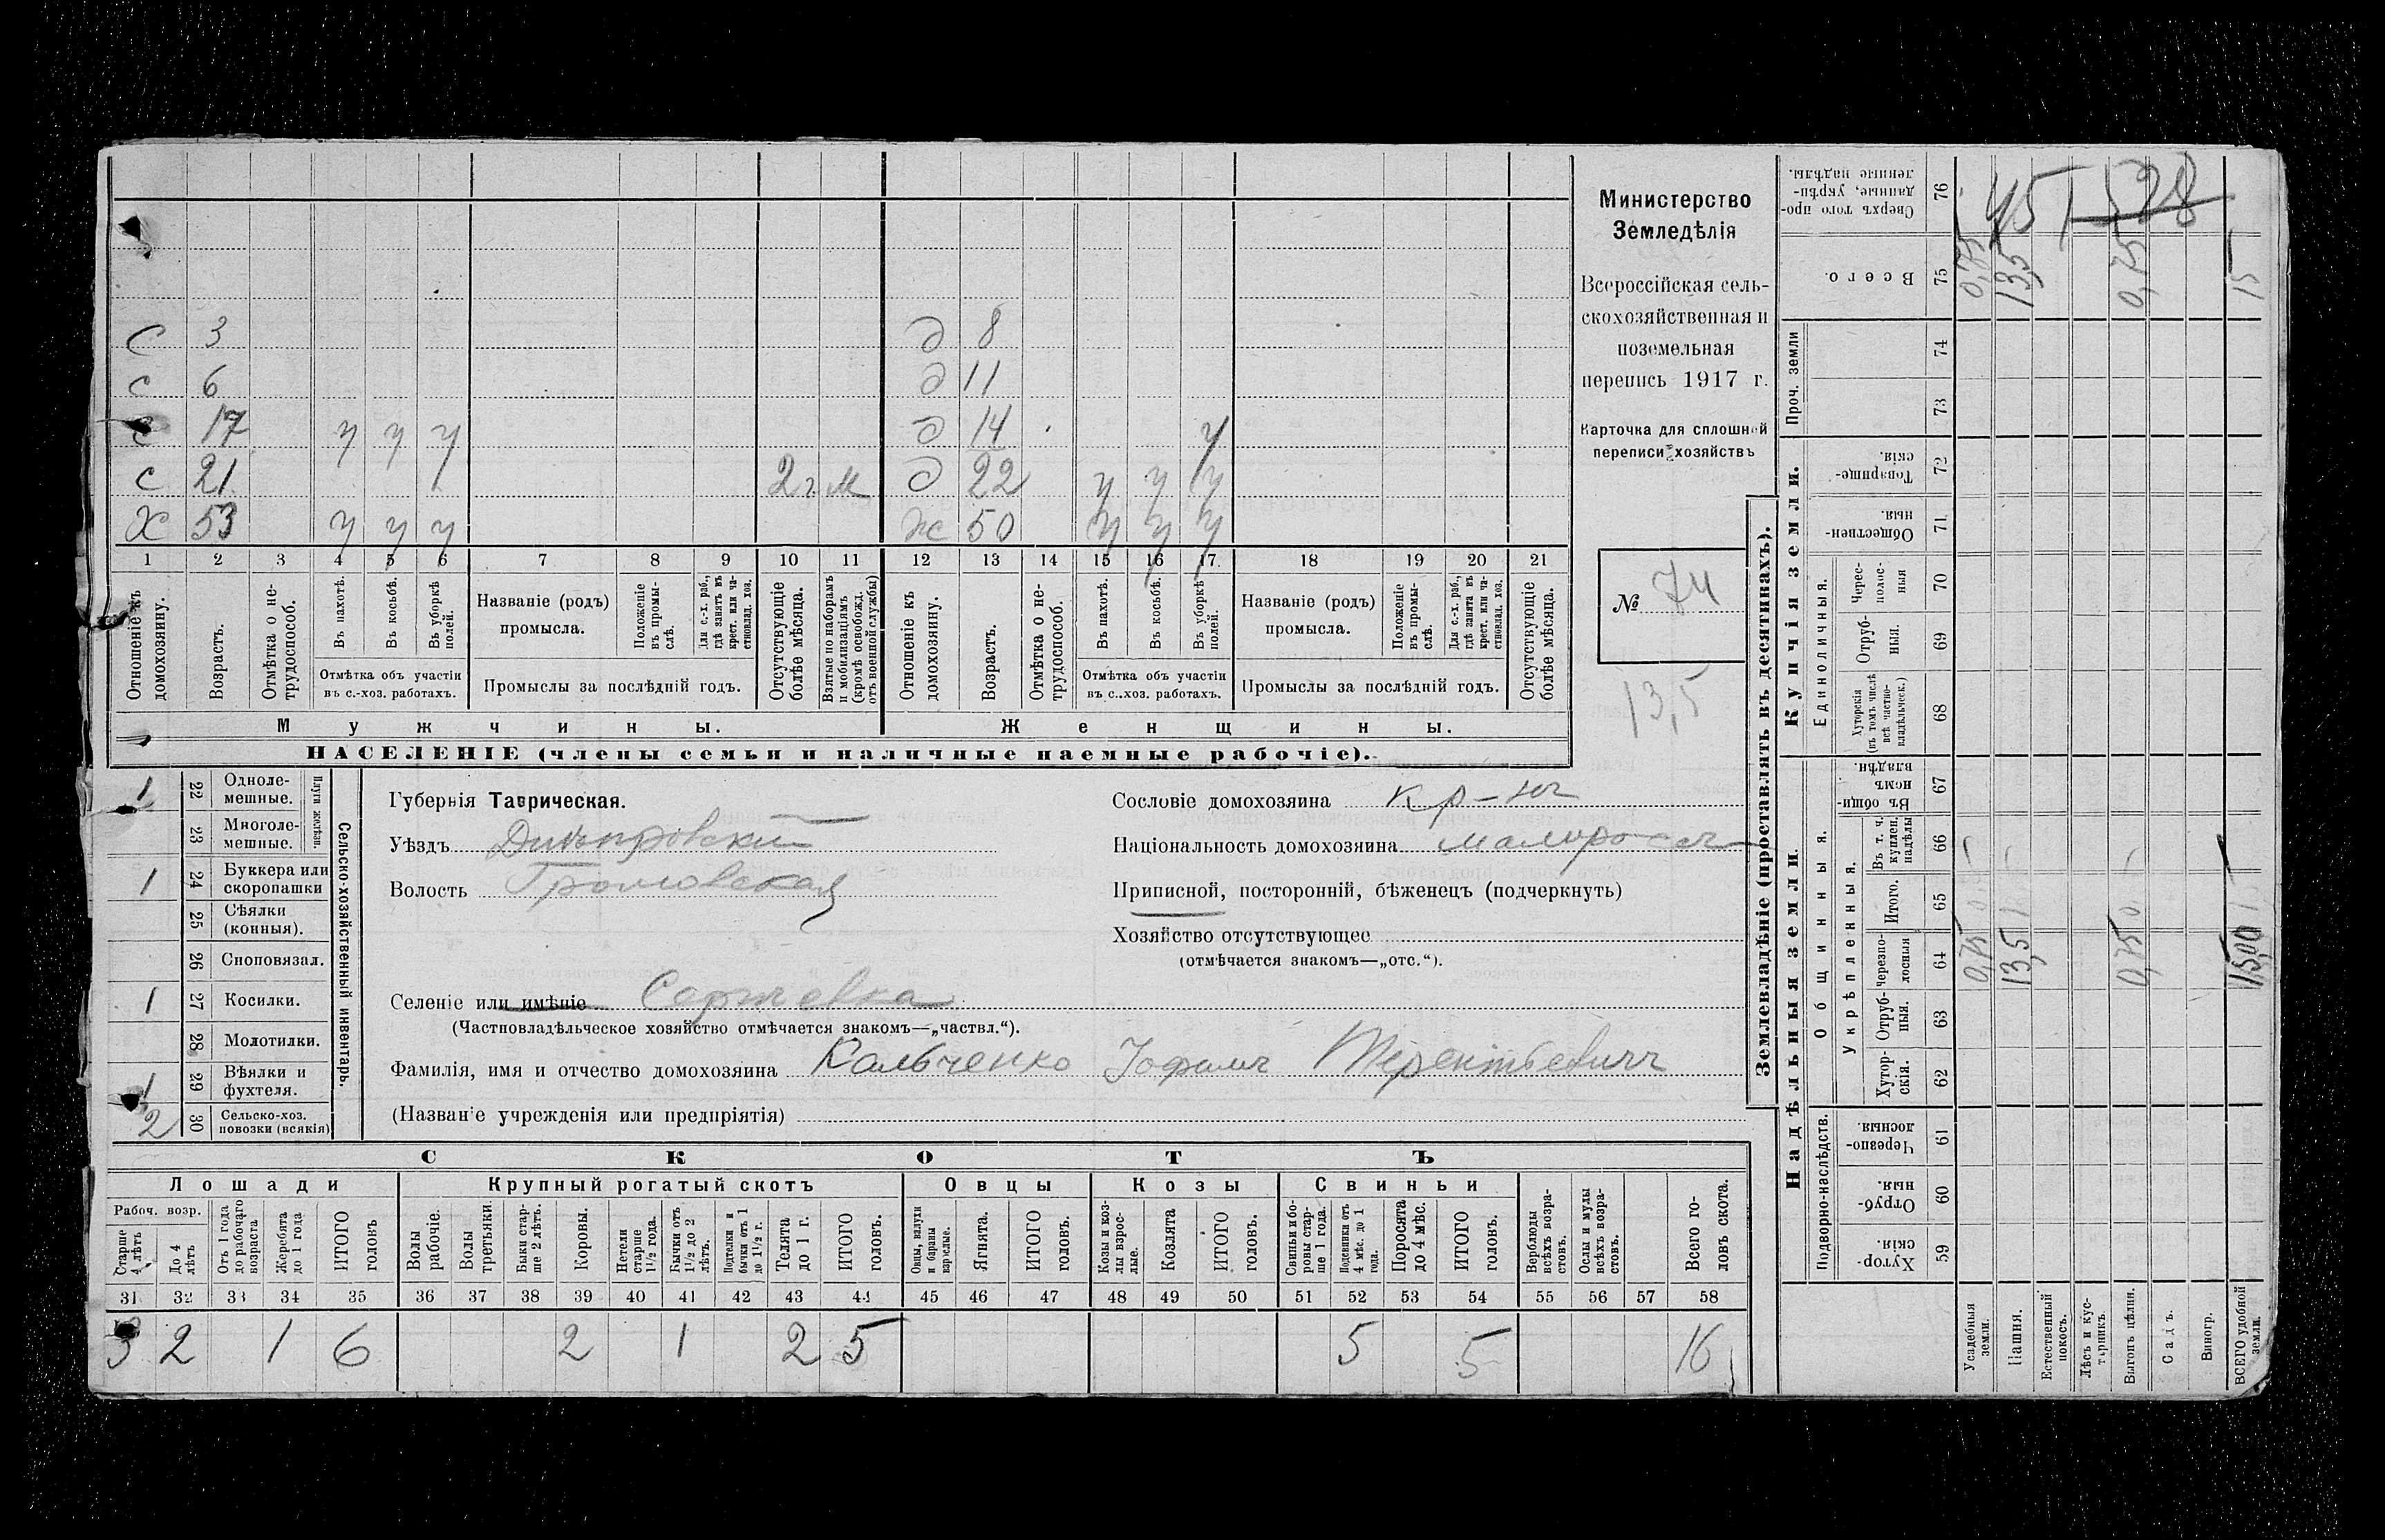 С 3 д 8
с 6 д 11
с 17 у у у д 14 у
с 21 2 г. м д 22 у у у
Х 53 у у у ж 50 у у у
1 2 3 4 5 6 7 8 9 10 11 12 13 14 15 16 17 18 19 20 21
Отношеніе къ домохозяину.
Возрастъ.
Отмѣтка о не-
трудоспособ.
Въ пахотѣ.
Въ косьбѣ.
Въ уборкѣ полей.
Отмѣтка объ участіи
въ с.-хоз. работахъ.
Названіе (родъ)
промысла.
Положеніе
въ промы-
слѣ.
Для с.-х. раб.,
гдѣ занятъ въ
крест. или ча-
стновлад. хоз.
Промыслы за послѣдній годъ.
Отсутствующіе
болѣе мѣсяца.
Взятые по наборамъ
и мобилизаціямъ
(кромѣ освобожд.
отъ военной службы)
Отношеніе къ
домохозяину.
Возрастъ.
Отмѣтка о не-
трудоспособ.
Въ пахотѣ.
Въ косьбѣ.
Въ уборкѣ
полей.
Отмѣтка объ участіи
въ с.-хоз. работахъ.
Названіе (родъ)
промысла.
Положеніе
въ промы-
слѣ.
Для с.-х. раб.,
гдѣ занята въ
крест. или ча-
стновлад. хоз.
Промыслы за послѣдній годъ.
Отсутствующіе
болѣе мѣсяца.
Мужчины.
Женщины.
НАСЕЛЕНІЕ (члены семьи и наличные наемные рабочіе).
Министерство
Земледѣлія
Всероссійская сель-
скохозяйственная и
поземельная
перепись 1917 г.
Карточка для сплошной
переписи хозяйствъ
№ 74
13,5
1 22 Одноле-
мешные.
23 Многоле-
мешные.
Плуги желѣзн.
1 24 Буккера или
скоропашки
25 Сѣялки
(конныя).
26 Сноповязал.
1 27 Косилки.
28 Молотилки.
1 29 Вѣялки и
фухтеля.
2 30 Сельско-хоз.
повозки (всякія)
Сельско-хозяйственный инвентарь.
Губернія Таврическая.
Уѣздъ Днѣпровскій
Волость Громовская
Селеніе или имѣніе Сергѣевка
(Частновладѣльческое хозяйство отмѣчается знакомъ—„частвл.“).
Фамилія, имя и отчество домохозяина Кальченко Терентьевичъ
(Названіе учрежденія или предпріятія)
Сословіе домохозяина кр-нъ
Національность домохозяина малороссъ
Приписной, посторонній, бѣженецъ (подчеркнуть)
Хозяйство отсутствующее
(отмѣчается знакомъ—„отс.“).
СКОТЪ
Лошади
Крупный рогатый скотъ
Овцы
Козы
Свиньи
Рабоч. возр.
Старше
4 лѣтъ
До 4
лѣтъ
Отъ 1 года
до рабочаго
возраста
Жеребята
до 1 года
ИТОГО
головъ
Волы
рабочіе.
Волы
третьяки.
Быки стар-
ше 2 лѣтъ.
Коровы.
Нетели
старше
1½ года.
Бычки отъ
1½ до 2
лѣтъ.
Подтелки и
бычки отъ 1
до 1½ г.
Телята
до 1 г.
ИТОГО
головъ.
Овцы, валухи
и бараны
взрослые.
Ягнята.
ИТОГО
головъ.
Козы и коз-
лы взрос-
лые.
Козлята
ИТОГО
головъ.
Свиньи и бо-
ровы стар-
ше 1 года.
Подсвинки отъ
4 мѣс. до 1
года.
Поросята
до 4 мѣс.
ИТОГО
головъ.
Верблюды
всѣхъ возра-
стовъ.
Ослы и мулы
всѣхъ возра-
стовъ.
Всего го-
ловъ скота.
31 32 33 34 35 36 37 38 39 40 41 42 43 44 45 46 47 48 49 50 51 52 53 54 55 56 57 58
3 2 1 6 2 1 2 5 5 5 16
Землевладѣніе (проставлять въ десятинахъ).
Надѣльныя земли.
Купчія земли.
Проч. земли
Подворно-наслѣдств.
Общинныя.
Укрѣпленныя.
Единоличныя.
Сверхъ того про-
данные, укрѣп-
ленные надѣлы.
76
45 1 528
Всего.
75
0,75 13,5 0,75 15
74
73
Товарище-
скія.
72
Обществен-
ныя.
71
Черес-
полос-
ныя
70
Отруб-
ныя.
69
Хуторскія
(въ томъ числѣ
всѣ частно-
владѣльческ.)
68
Въ общин-
номъ
владѣн.
67
Въ т. ч.
куплен.
надѣлы
66
Итого.
65
черезпо-
лосныя
64
0,75 13,5 0,75 15,00
Отруб-
ныя.
63
Хутор-
скія.
62
Черезпо-
лосныя.
61
Отруб-
ныя.
60
Хутор-
скія.
59
Усадебныя
земли.
Пашня.
Естественный
покосъ.
Лѣсъ и кус-
тарникъ.
Выгонъ цѣлин.
Садъ.
Виногр.
ВСЕГО удобной
земли.